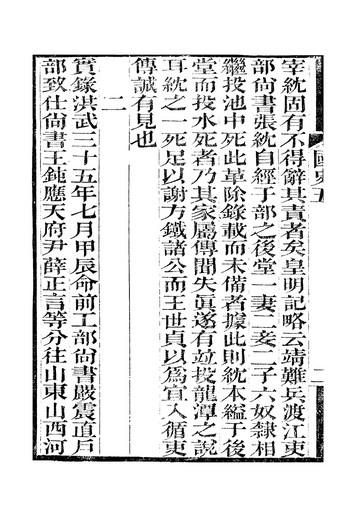 國史五
二
宰紞固有不得辭其責者矣皇明記略云靖難兵渡江吏
部尚書張紞自經于部之後堂一妻二妾二子六奴隸相
繼投池中死此革除錄載而未備者據此則紞本縊于後
堂而投水死者乃其家屬傳聞失眞遂有竝投龍潭之說
耳紞之一死足以謝方鐵諸公而王世貞以爲宜入循吏
傳誠有見也
二
實錄洪武三十五年七月甲辰命前工部尚書嚴震直戶
部致仕尚書王鈍應天府尹薛正言等分往山東山西河